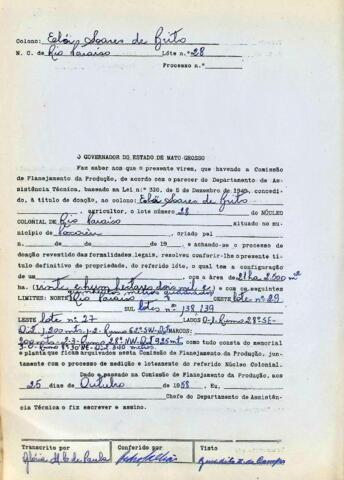 Colono: Eloi Soares de Brito
N. C. de Rio Paraiso Lote n.º 28
Processo n.º
O GOVERNADOR DO ESTADO DE MATO GROSSO
Faz saber aos que o presente virem, que havendo a Comissão
de Planejamento da Produção, de acordo com o parecer do Departamento de As-
sistência Técnica, baseado na Lei n.º 336, de 6 de Dezembro de 1949, concedi-
do, a titulo de doação, ao colono: Eloi Soares de Brito
, agricultor, o lote número 28 do NÚCLEO
COLONIAL DE Rio Paraiso situado no mu-
nicípio de Poxoréu, criado pel
n. de de de 19 e achando-se o processo de
doação revestido das formalidades legais, resolveu conferir-lhe o presente titulo
definitivo de propriedade, do referido lote, o qual tem a configuração
de um , com a área de 21 ha. 2.200 m²
ha. (vinte e hum hectares dois mil e
metros quadrados) e com os seguintes
LIMITES: NORTE Rio Paraiso OESTE lote nº 29
SUL lotes nºs 138, 139
LESTE lote nº 27 LADOS 0-1-Rumo 28º SE-
Dist. 1.200 mts. 1-2-Rumo 62º SW-Dist. MARCOS:
200 mts. 2-3-Rumo 28º NW-Dist. 925 mt tudo como consta do memorial
e planta que ficam arquivados nesta Comissão de Planejamento da Produção, jun-
tamente com o processo de medição e loteamento do referido Núcleo Colonial.
Dado e passado na Comissão de Planejamento da Produção, aos
25 dias de Outubro de 1958 Eu,
Chefe do Departamento de Assis-
tência Técnica o fiz escrever e assino.
Transcrito por Conferido por Visto
Glória M. C. de Paula Benedito de Campos